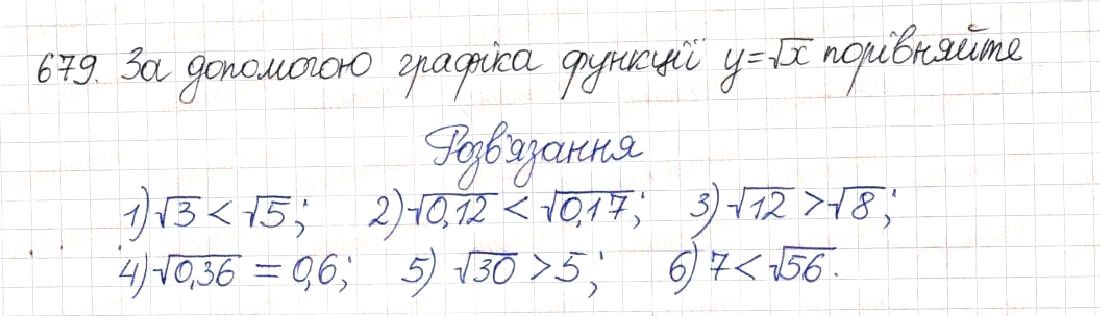 679. За допомогою графіка функції y=√x порівняйте
Розв'язання
1) √3 < √5; 2) √0,12 < √0,17; 3) √12 > √8;
4) √0,36 = 0,6; 5) √30 > 5; 6) 7 < √56.